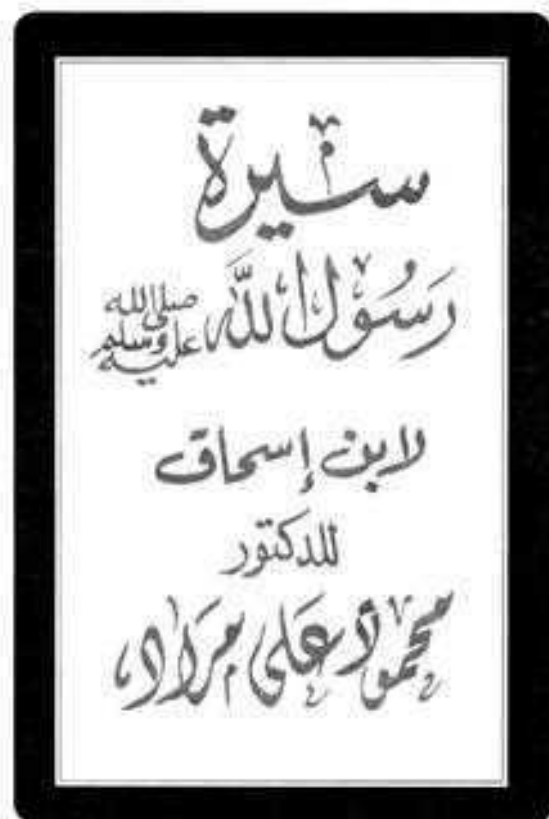 سيرة
رَسُول اللَّه صلى الله عليه وسلم
لابن إسحاق
للدكتور
محمود على مراد